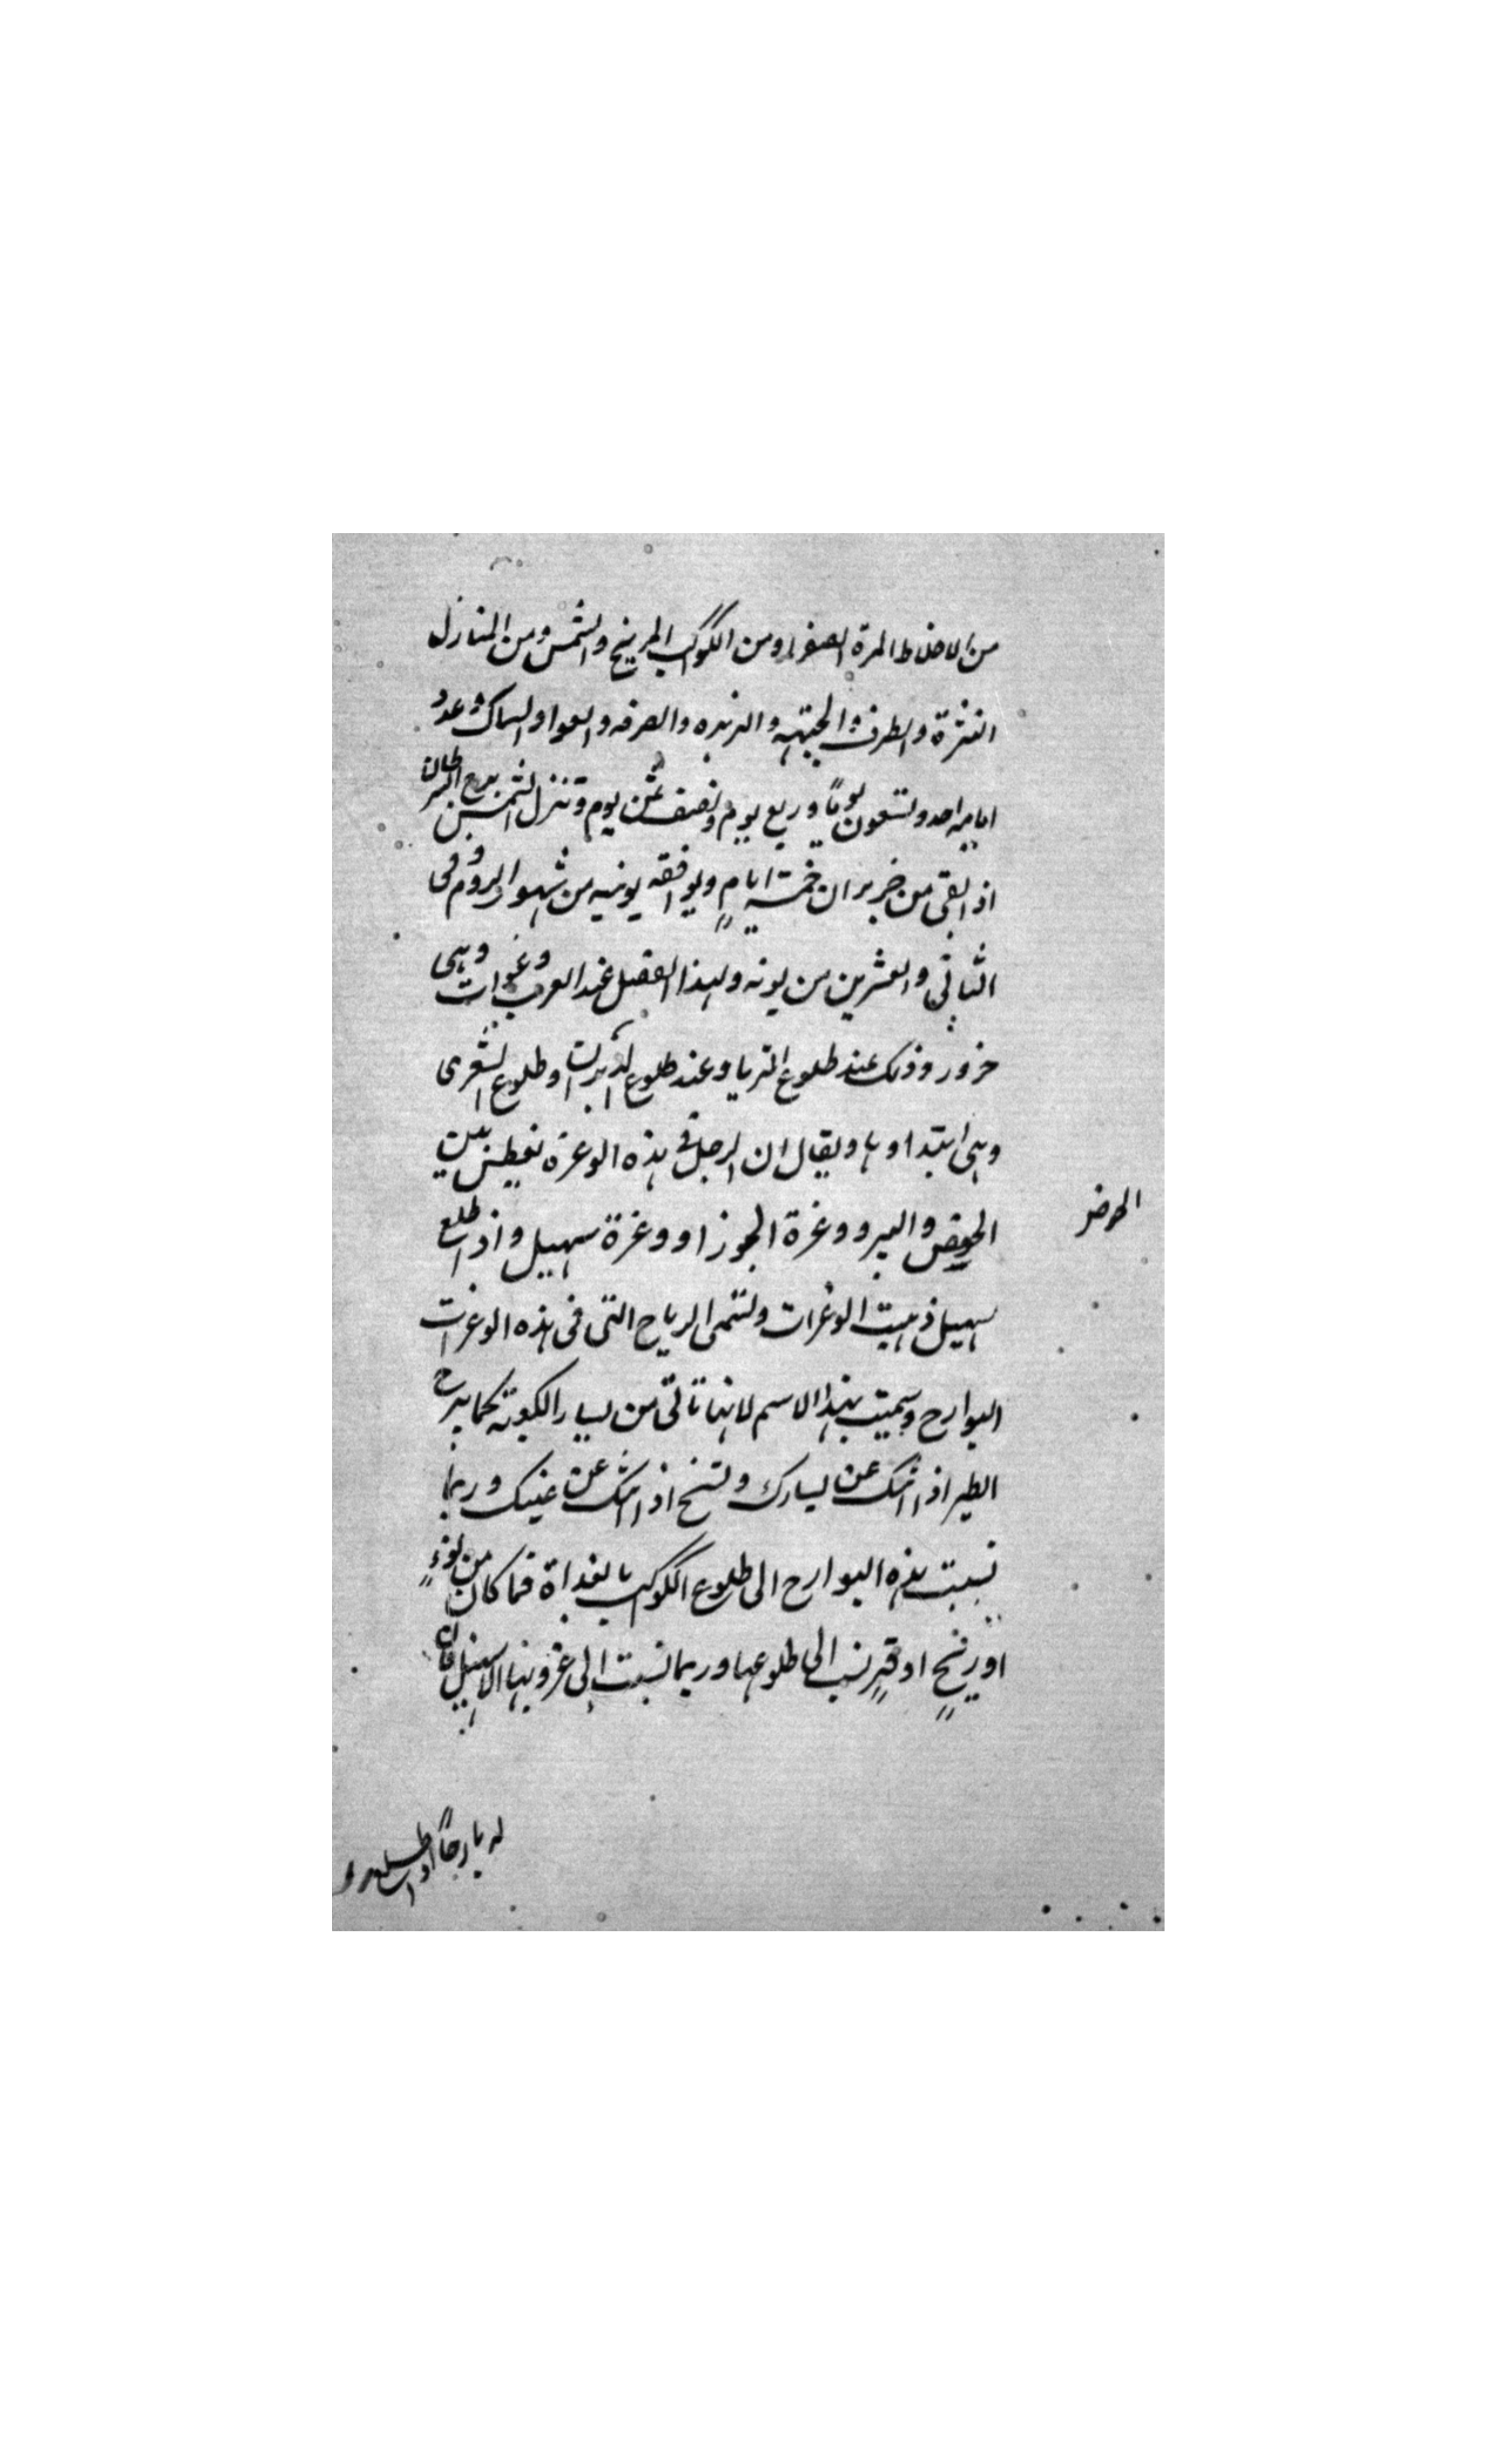 من الاخلاط المرة الصفرا ومن الكواكب المريخ والشمس ومن المنازل
النثرة والطرف والجبهه والزبره والصرفه والعوا والسماك وعدد
ايامه احد وتسعون يوماً وربع يوم ونصف ثمن يوم وتنزل الشمس برج السرطان
اذا بقى من خزيران خمسة ايامٍ ويوافقه يونيه من شهور الروم وفى
الثانى والعشرين من يونه ولهذا الفصل عند العرب وغرات وهى
حرور وذلك عند طلوع الثريا وعند طلوع الدبران وطلوع الشعرى
وهى ابتداوها ويقال ان الرجل فى هذه الوغرة يعطش بين
الحوض والبير ووغرة الجوزا ووغرة سهيل واذا طلع
سهيل ذهبت الوغرات وتسمى الرياح التى فى هذه الوغرات
البوارح وسميت بهذا الاسم لانها تاتى من يسار الكعبة كما يبرح
الطير اذا اتتك عن يسارك وتسنح اذا اتتك عن يمينك وربما
نسبت هذه البوارح الى طلوع الكواكب بالغداة فما كان من نوءٍ
او ريحٍ او قرٍ نسب الى طلوعها وربما نسبت الى غروبها الا سهيل فان
له بارحاً اذا طلع